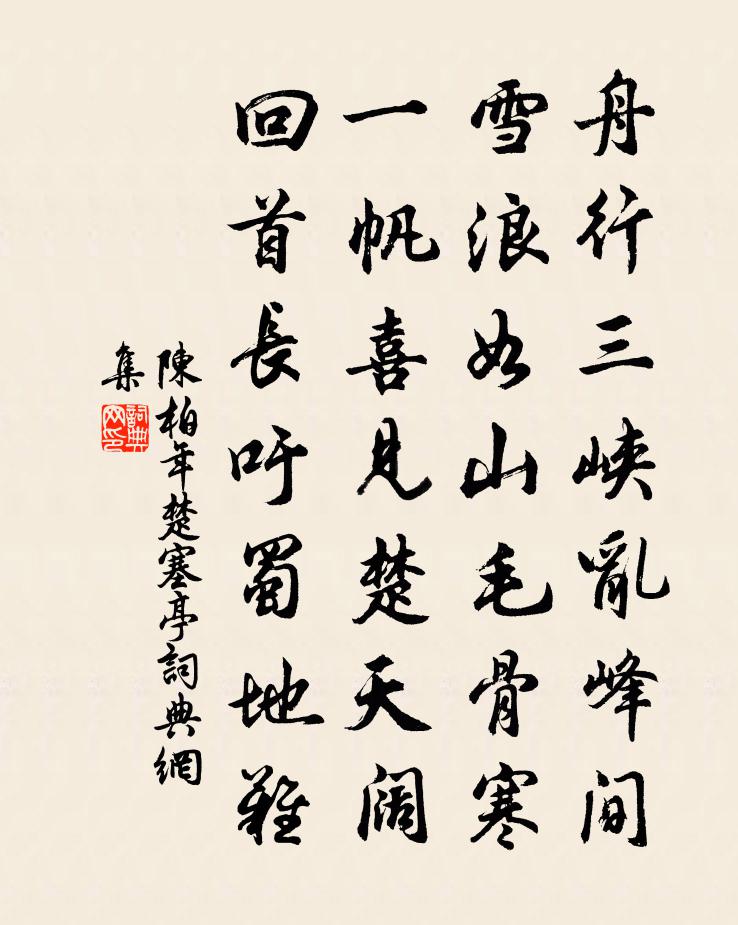 舟行三峡亂峰间
雪浪如山毛骨寒
一帆喜見楚天阔
回首長吁蜀地難
陳柏年楚塞亭詞典網
集
詞典网印